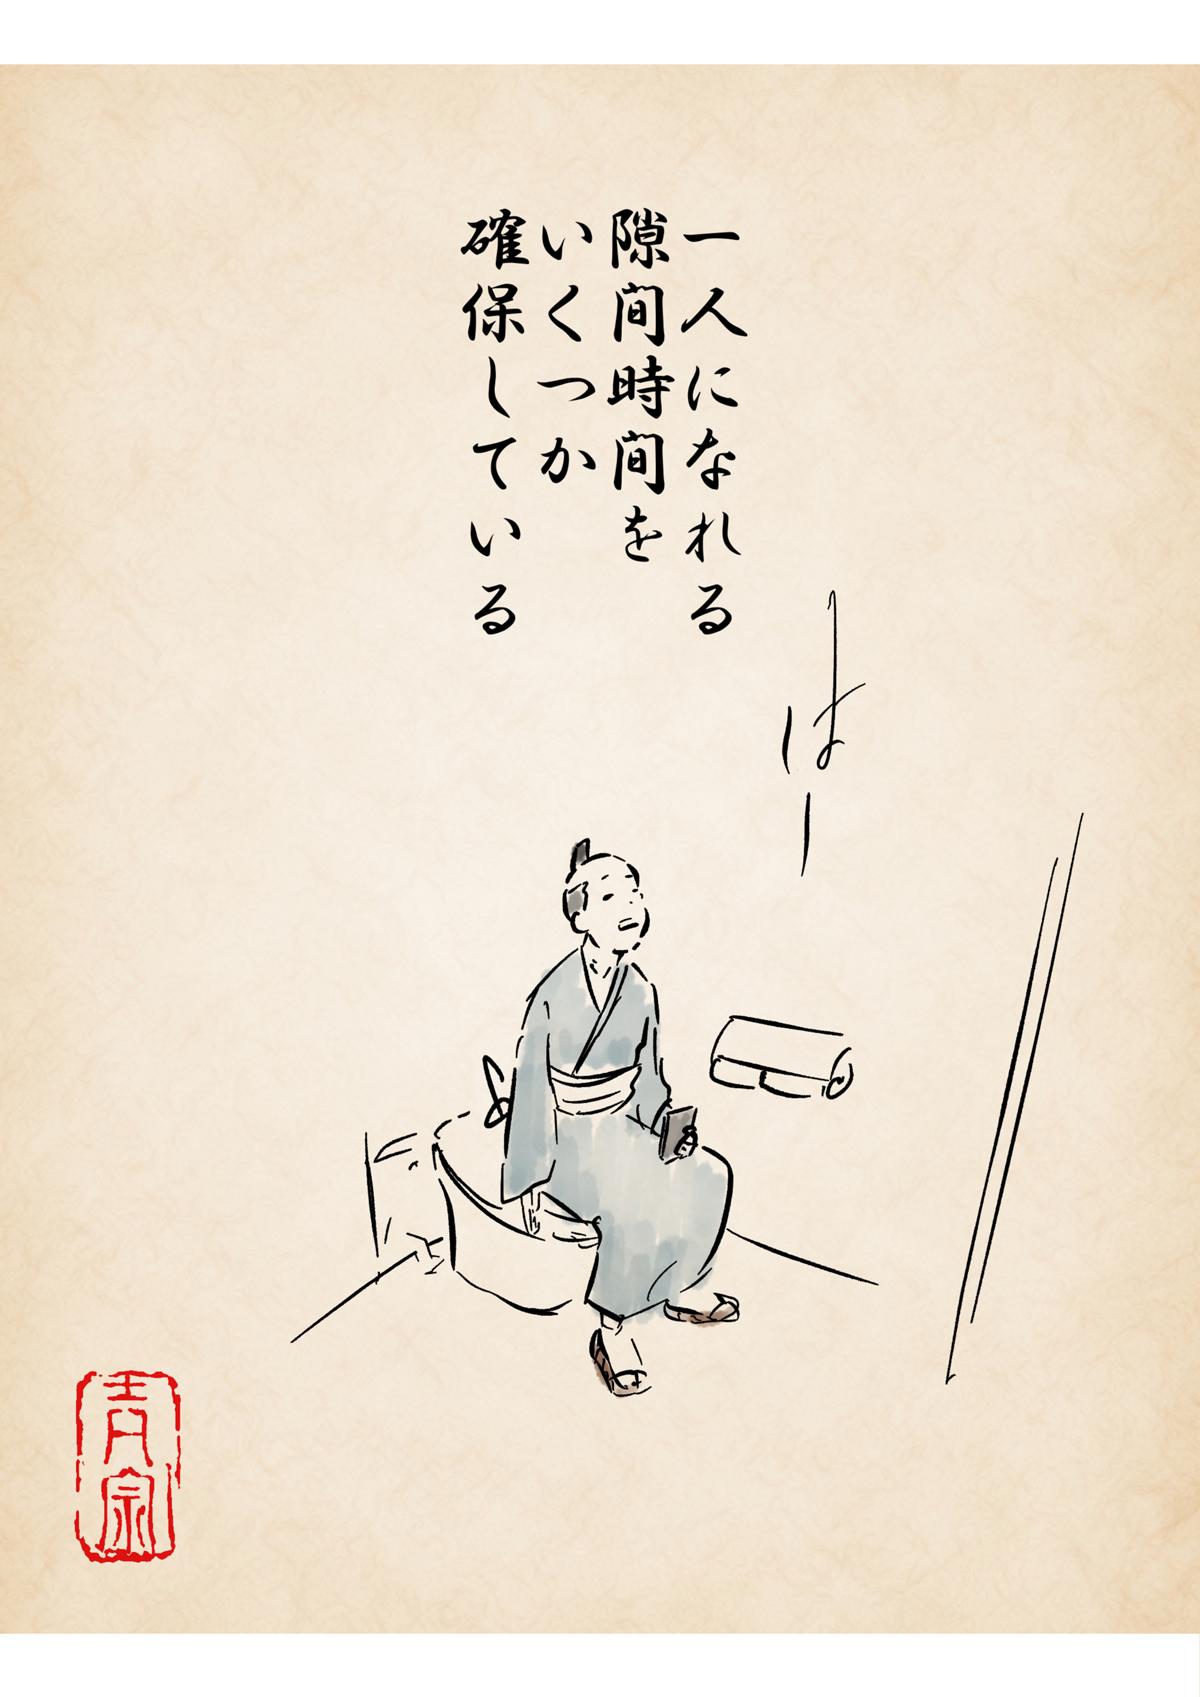 一人になれる
隙間時間を
いくつか
確保している
はー
青宗